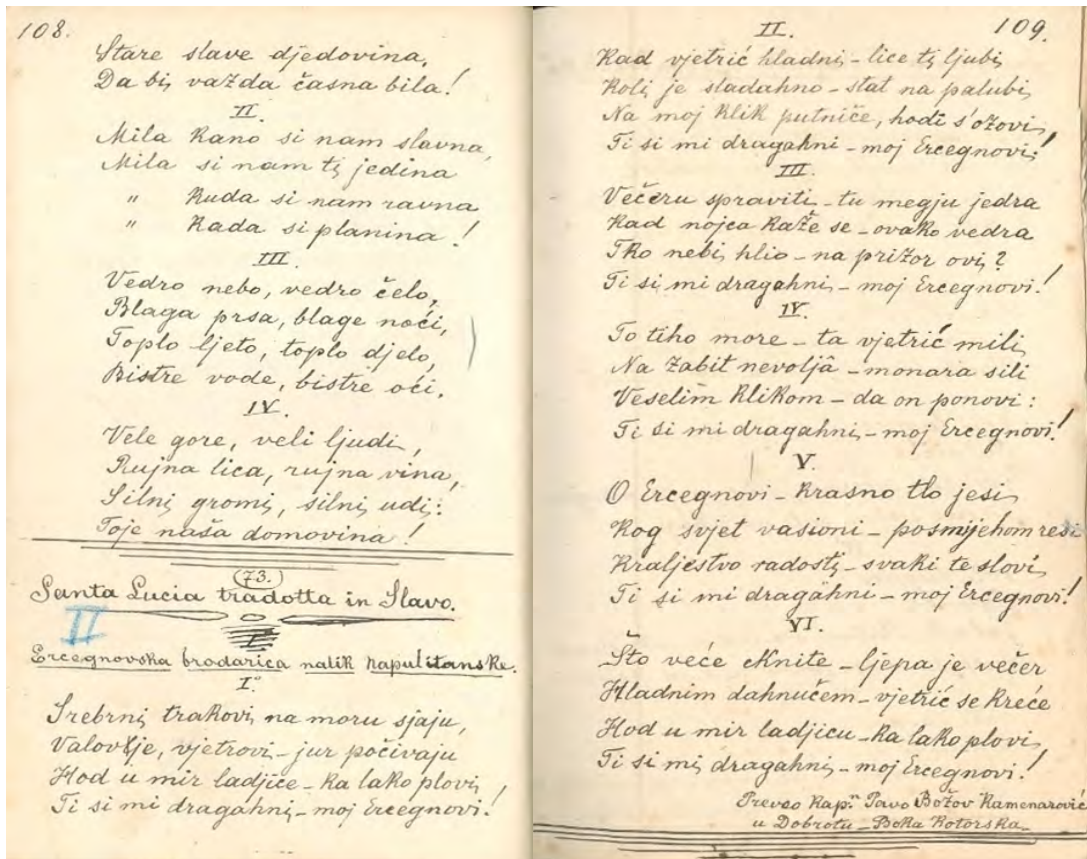 108.
Stare slave djedovina,
Da bi, vazda časna bila!
II.
Mila Kano si nam slavna,
Mila si nam ti, jedina
" Kuda si nam ravna
" Kada si planina!
III.
Vedro nebo, vedro čelo,
Blaga prsa, blage noći,
Toplo ljeto, toplo djelo,
Bistre vode, bistre oči,
IV.
Vele gore, veli ljudi,
Rujna lica, rujna vina,
Silni, gromi, silni udi:
Toje naša domovina!
(73.)
Santa Lucia tradotta in Slavo.
II
Ercegnovska brodarica nalik napulitanske.
I.º
Srebrni, trakovi, na moru sjaju,
Valovlje, vjetrovi - jur počivaju
Hod u mir ladjice - ka lako plovi,
Ti si mi dragahni, - moj Ercegnovi!
109.
II.
Kad vjetrić hladni, - lice ti, ljubi,
Koli, je sladahno - stat na palubi,
Na moj klik putniče, hodi s'ozovi,
Ti si mi dragahni - moj Ercegnovi!
III.
Večeru spraviti - tu megju jedra
Kad nojca kaže se - ovako vedra
Tko nebi, hlio - na prizor ovi?
Ti si mi dragahni, - moj Ercegnovi!
IV.
To tiho more - ta vjetrić mili,
Na zabit nevoljâ - monara sili
Veselim klikom - da on ponovi:
Ti si mi dragahni, - moj Ercegnovi!
V.
O Ercegnovi - krasno tlo jesi,
Kog svjet vasioni - posmijehom resi
Kraljestvo radosti, - svaki te slovi,
Ti si mi dragahni - moj Ercegnovi!
VI.
Što veće cknite - ljepa je večer
Hladnim dahnućem - vjetrić se kreće
Hod u mir ladjicu - ka lako plovi,
Ti si mi, dragahni, - moj Ercegnovi!
Preveo Kap.n Pavo Božov Kamenarović
u Dobrotu - Boka Kotorska -